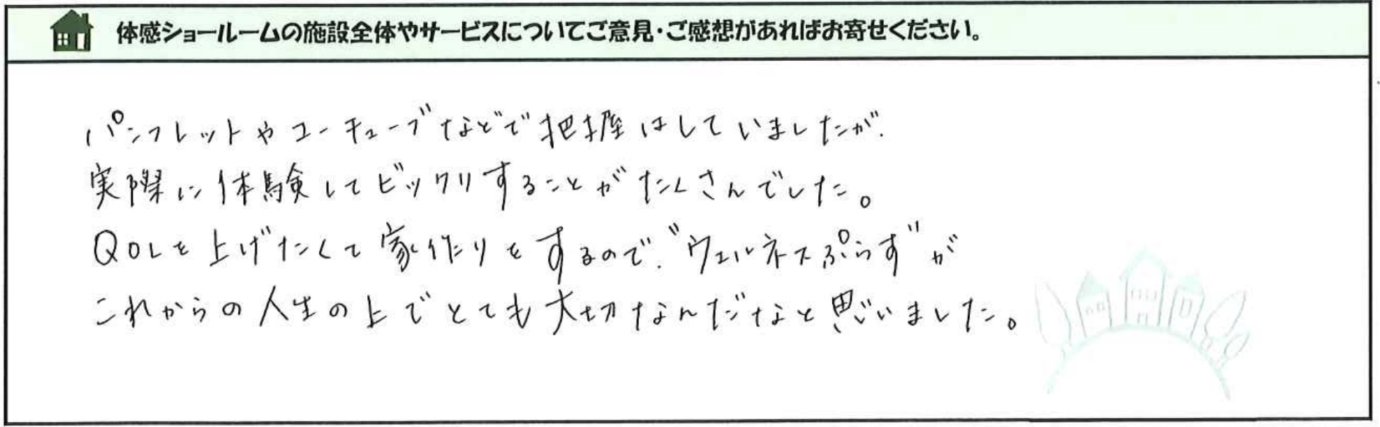 体感ショールームの施設全体やサービスについてご意見・ご感想があればお寄せください。
パンフレットやユーチューブなどで把握はしていましたが、
実際に体験してビックリすることがたくさんでした。
QOLを上げたくて家作りをするので、"ウェルネスぷらす"が
これからの人生の上でとても大切なんだなと思いました。